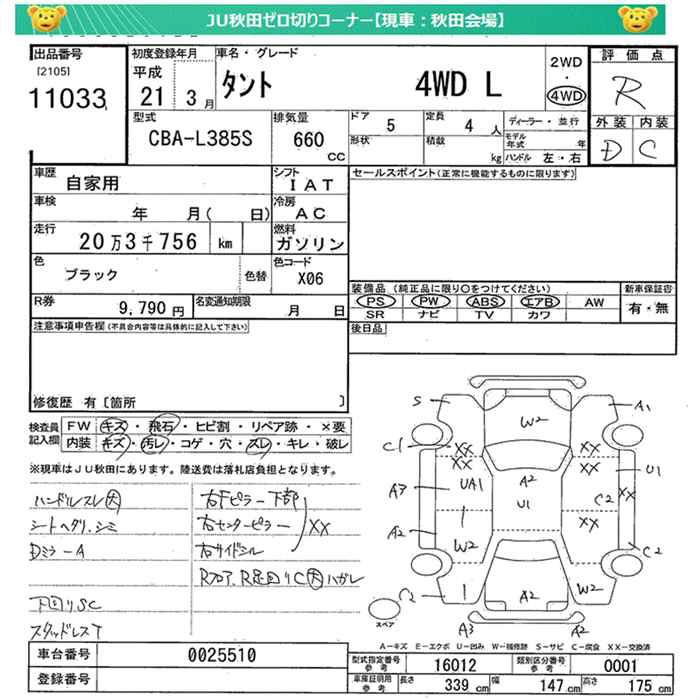 JU秋田ゼロ切りコーナー【現車：秋田会場】
出品番号
[2105]
11033
初度登録年月
平成
21 3月
車名・グレード
タント 4WD L
2WD
・
4WD
評価点
R
外装 内装
D C
型式
CBA-L385S
排気量
660
CC
ドア 5
形状
定員 4 人
積載 kg
ディーラー・並行
モデル年式 年
ハンドル 左・右
車歴 自家用
シフト IAT
セールスポイント(正常に機能するものに限ります)
車検 年 月( 日)
冷房 AC
走行 20万3千756 km
燃料 ガソリン
色 ブラック 色替
色コード X06
装備品 (純正品に限り○をつけてください) 新車保証書
PS PW ABS エアB AW 有・無
SR ナビ TV カワ
R券 9,790円
名変通知期限 月 日
後日品
注意事項申告欄(不具合内容等は具体的に記入して下さい)
修復歴 有〔箇所 〕
検査員記入欄
FW キズ・飛石・ヒビ割・リペア跡・×要
内装 キズ・汚レ・コゲ・穴・スレ・キレ・破レ
※現車はJU秋田にあります。陸送費は落札店負担となります。
ハンドルスレ大
シートヘタリ、シミ
Dミラー A
下回りSC
スタッドレスT
右Fピラー下部
右センターピラー XX
右サイドシル
Rフロア、R足回りC大ハガレ
S W2 A1
C1 XX XX XX
A3 UA1 A2 U1
U1 C2 XX
A2 W2 XX C2
A2 W2
スペア A3 A2
A-キズ E-エクボ U-凹み W-補修跡 S-サビ C-腐食 XX-交換済
車台番号 0025510
登録番号
型式指定番号参考 16012
類別区分番号参考 0001
車庫証明用参考 長さ 339 cm 幅 147 cm 高さ 175 cm